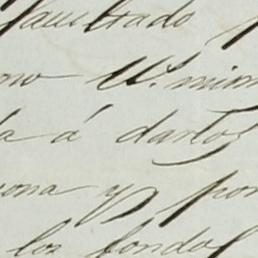 facultado p
mo V. mism
a á darlos
sona y por
los fondos